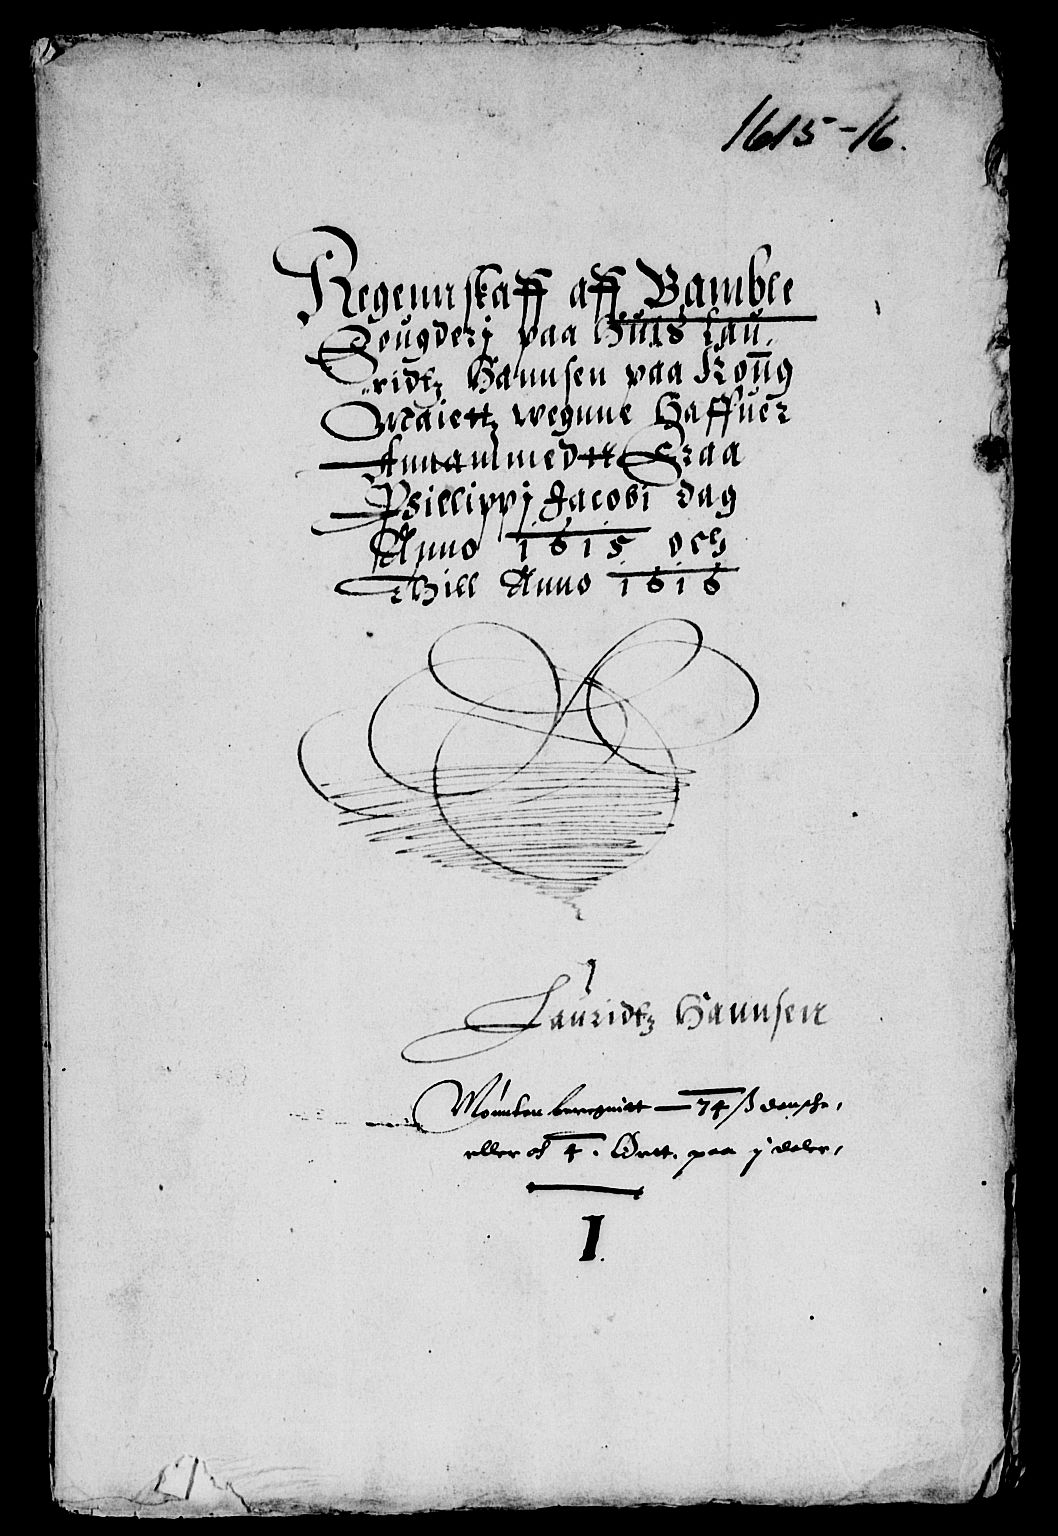 1615-16.
Regennskaff aff Bamble
Fougderj paa Huis Lau,
ridtz Hannsen paa Konng
Maiettz wegnne Haffuer
Annammedtt Fraa
Phillippj Jacobi dag
Anno 1615 och
thill Anno 1616
Lauridtz Hannsen
Mønnten beregnitt 74 ß danske,
eller och 4. Ørtt. paa j daler,
I.